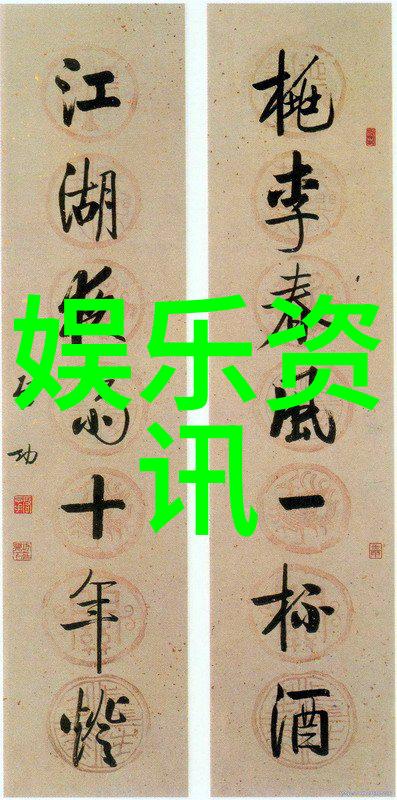 桃李春風一杯酒
江湖夜雨十年燈
启功
娱乐资
讯